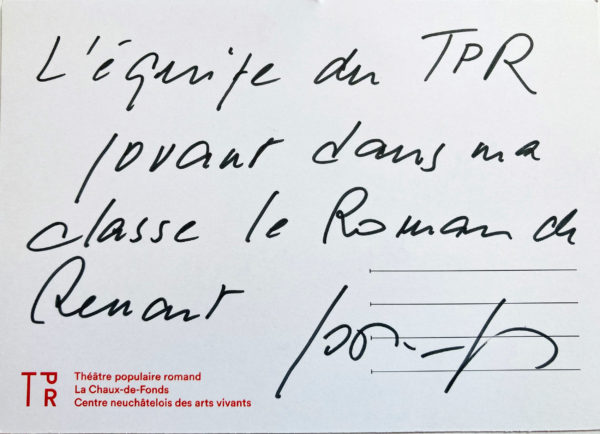 L'équipe du TPR
jouant dans ma
classe le Roman de
Renart
TPR
Théâtre populaire romand
La Chaux-de-Fonds
Centre neuchâtelois des arts vivants